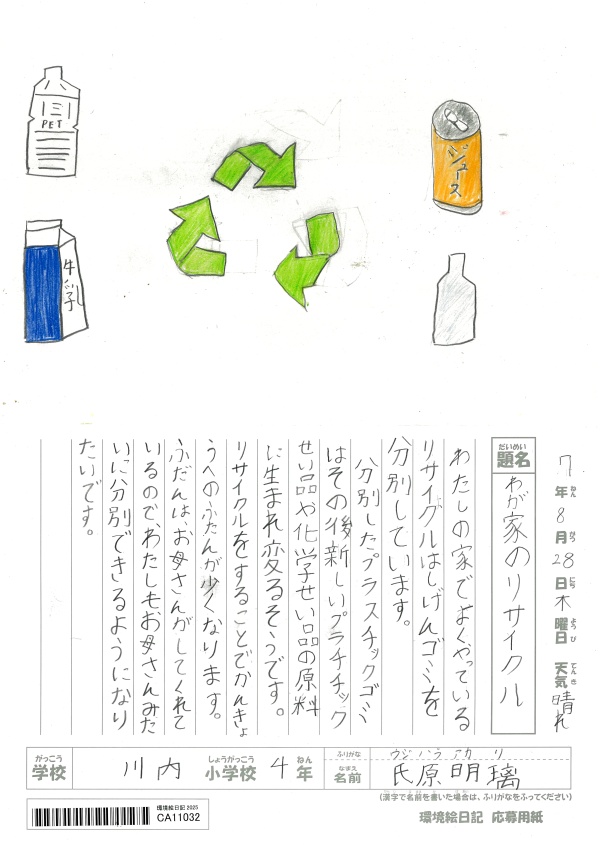 PET
牛乳
ジュース
7年8月28日木曜日 天気晴れ
ねん がつ にち ようび てんき
だいめい
題名
わが家のリサイクル
わたしの家でよくやっている
リサイクルはしげんゴミを
分別しています。
分別したプラスチックゴミ
はその後新しいプラチチック
せい品や化学せい品の原料
に生まれ変るそうです。
リサイクルをすることでかんきょ
うへのふたんが少くなります。
ふだんは、お母さんがしてくれて
いるので、わたしもお母さんみた
いに分別できるようになり
たいです。
がっこう しょうがっこう ねん
学校 川内 小学校 4年
ふりがな ウジハラ アカリ
なまえ
名前 氏原明璃
(漢字で名前を書いた場合は、ふりがなをふってください)
環境絵日記 2025
CA11032
環境絵日記 応募用紙